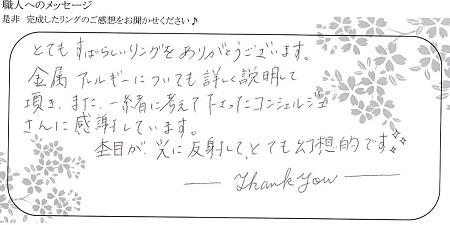 職人へのメッセージ
是非 完成したリングのご感想をお聞かせください♪
とてもすばらしいリングをありがとうございます。
金属アレルギーについても詳しく説明して
頂き、また、一緒に考えて下さったコンシェルジュ
さんに感謝しています。
杢目が、光に反射して、とても幻想的です
Thank You